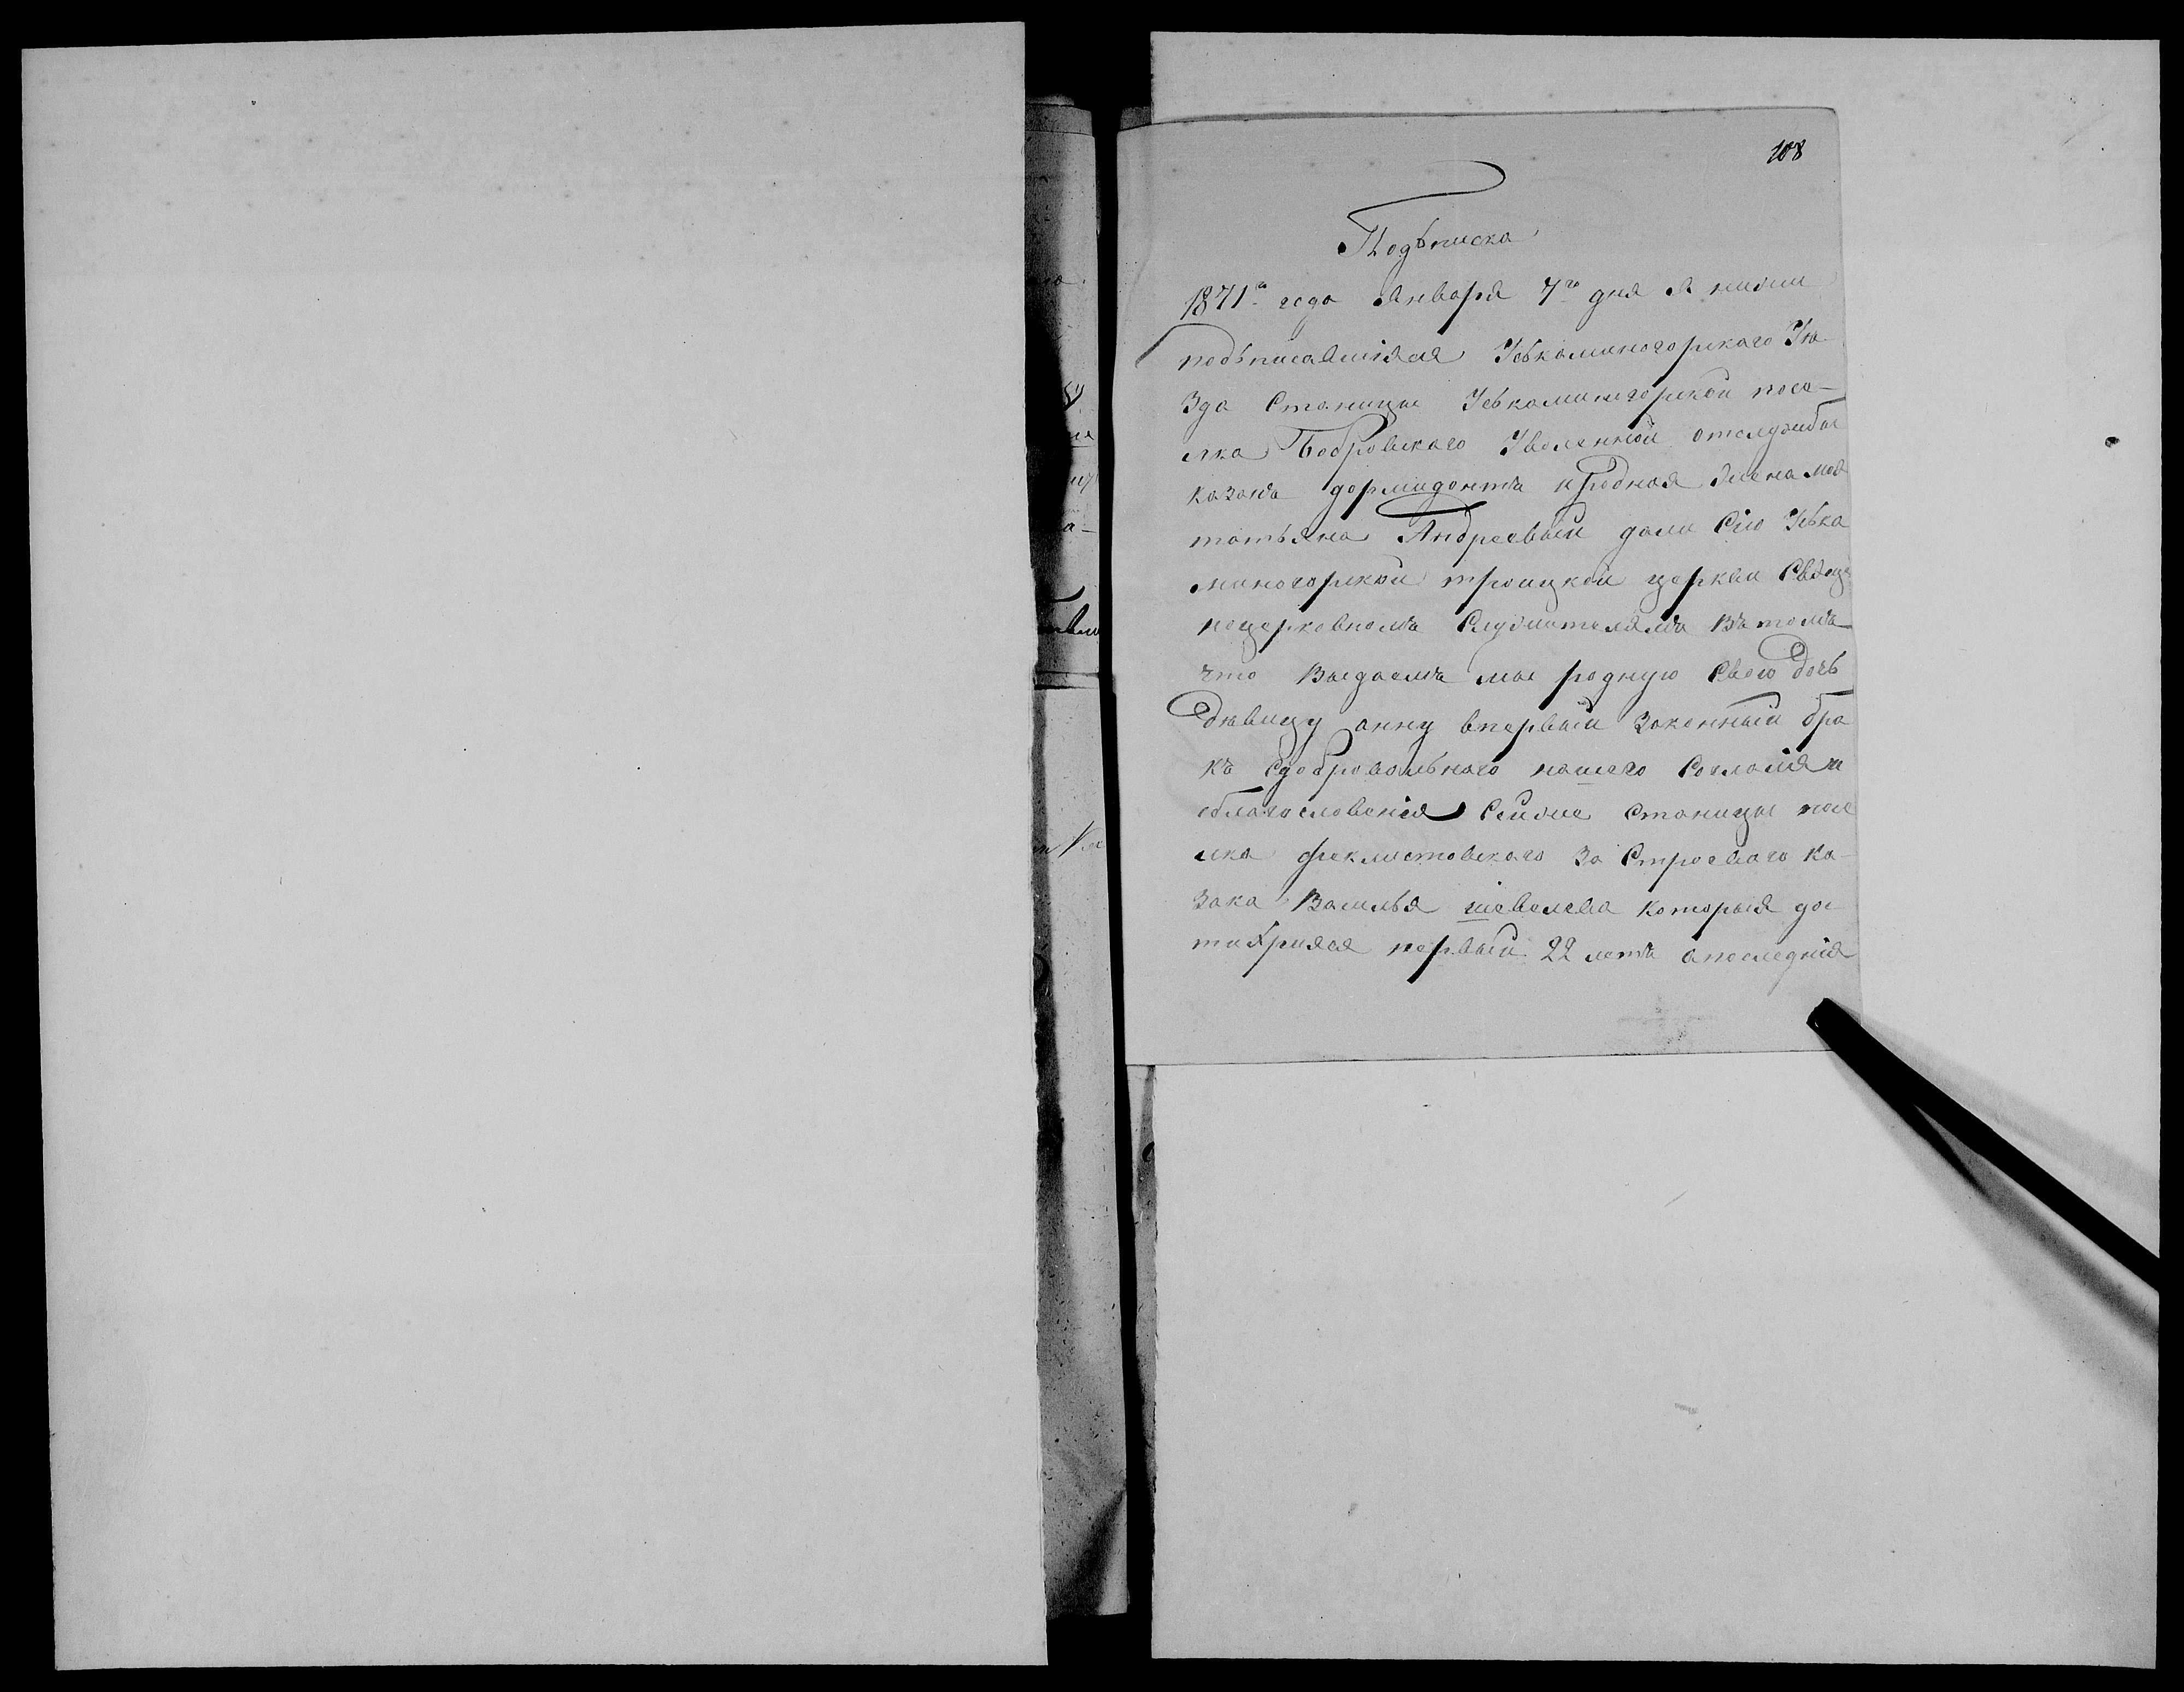 108
Подъписка
1871го года Января 7го дня Я ниже
подъписавшіяся Уськаминогорскаго Уѣ
Зда Станицы Уськаминогорской посе-
лка Бобровскаго Уволенной отслужбы
казакъ дормидонтъ иродная Жена моя
татьяна Андреевыи дали Сію Уська
миногорской троицкой церкви Свяще
ноцерковномъ Служителямъ Въ томъ
что Выдаемъ мы родную Свою дочь
дѣвицу анну впервый Законный бра
къ Сдобровольнаго нашего Согласія и
облагословенія Сейже Станицы пос
лка феклистовскаго За Строеваго Ка-
Зака Василья шевелева Которыя дос
тихриася первый 22 летъ апоследнія